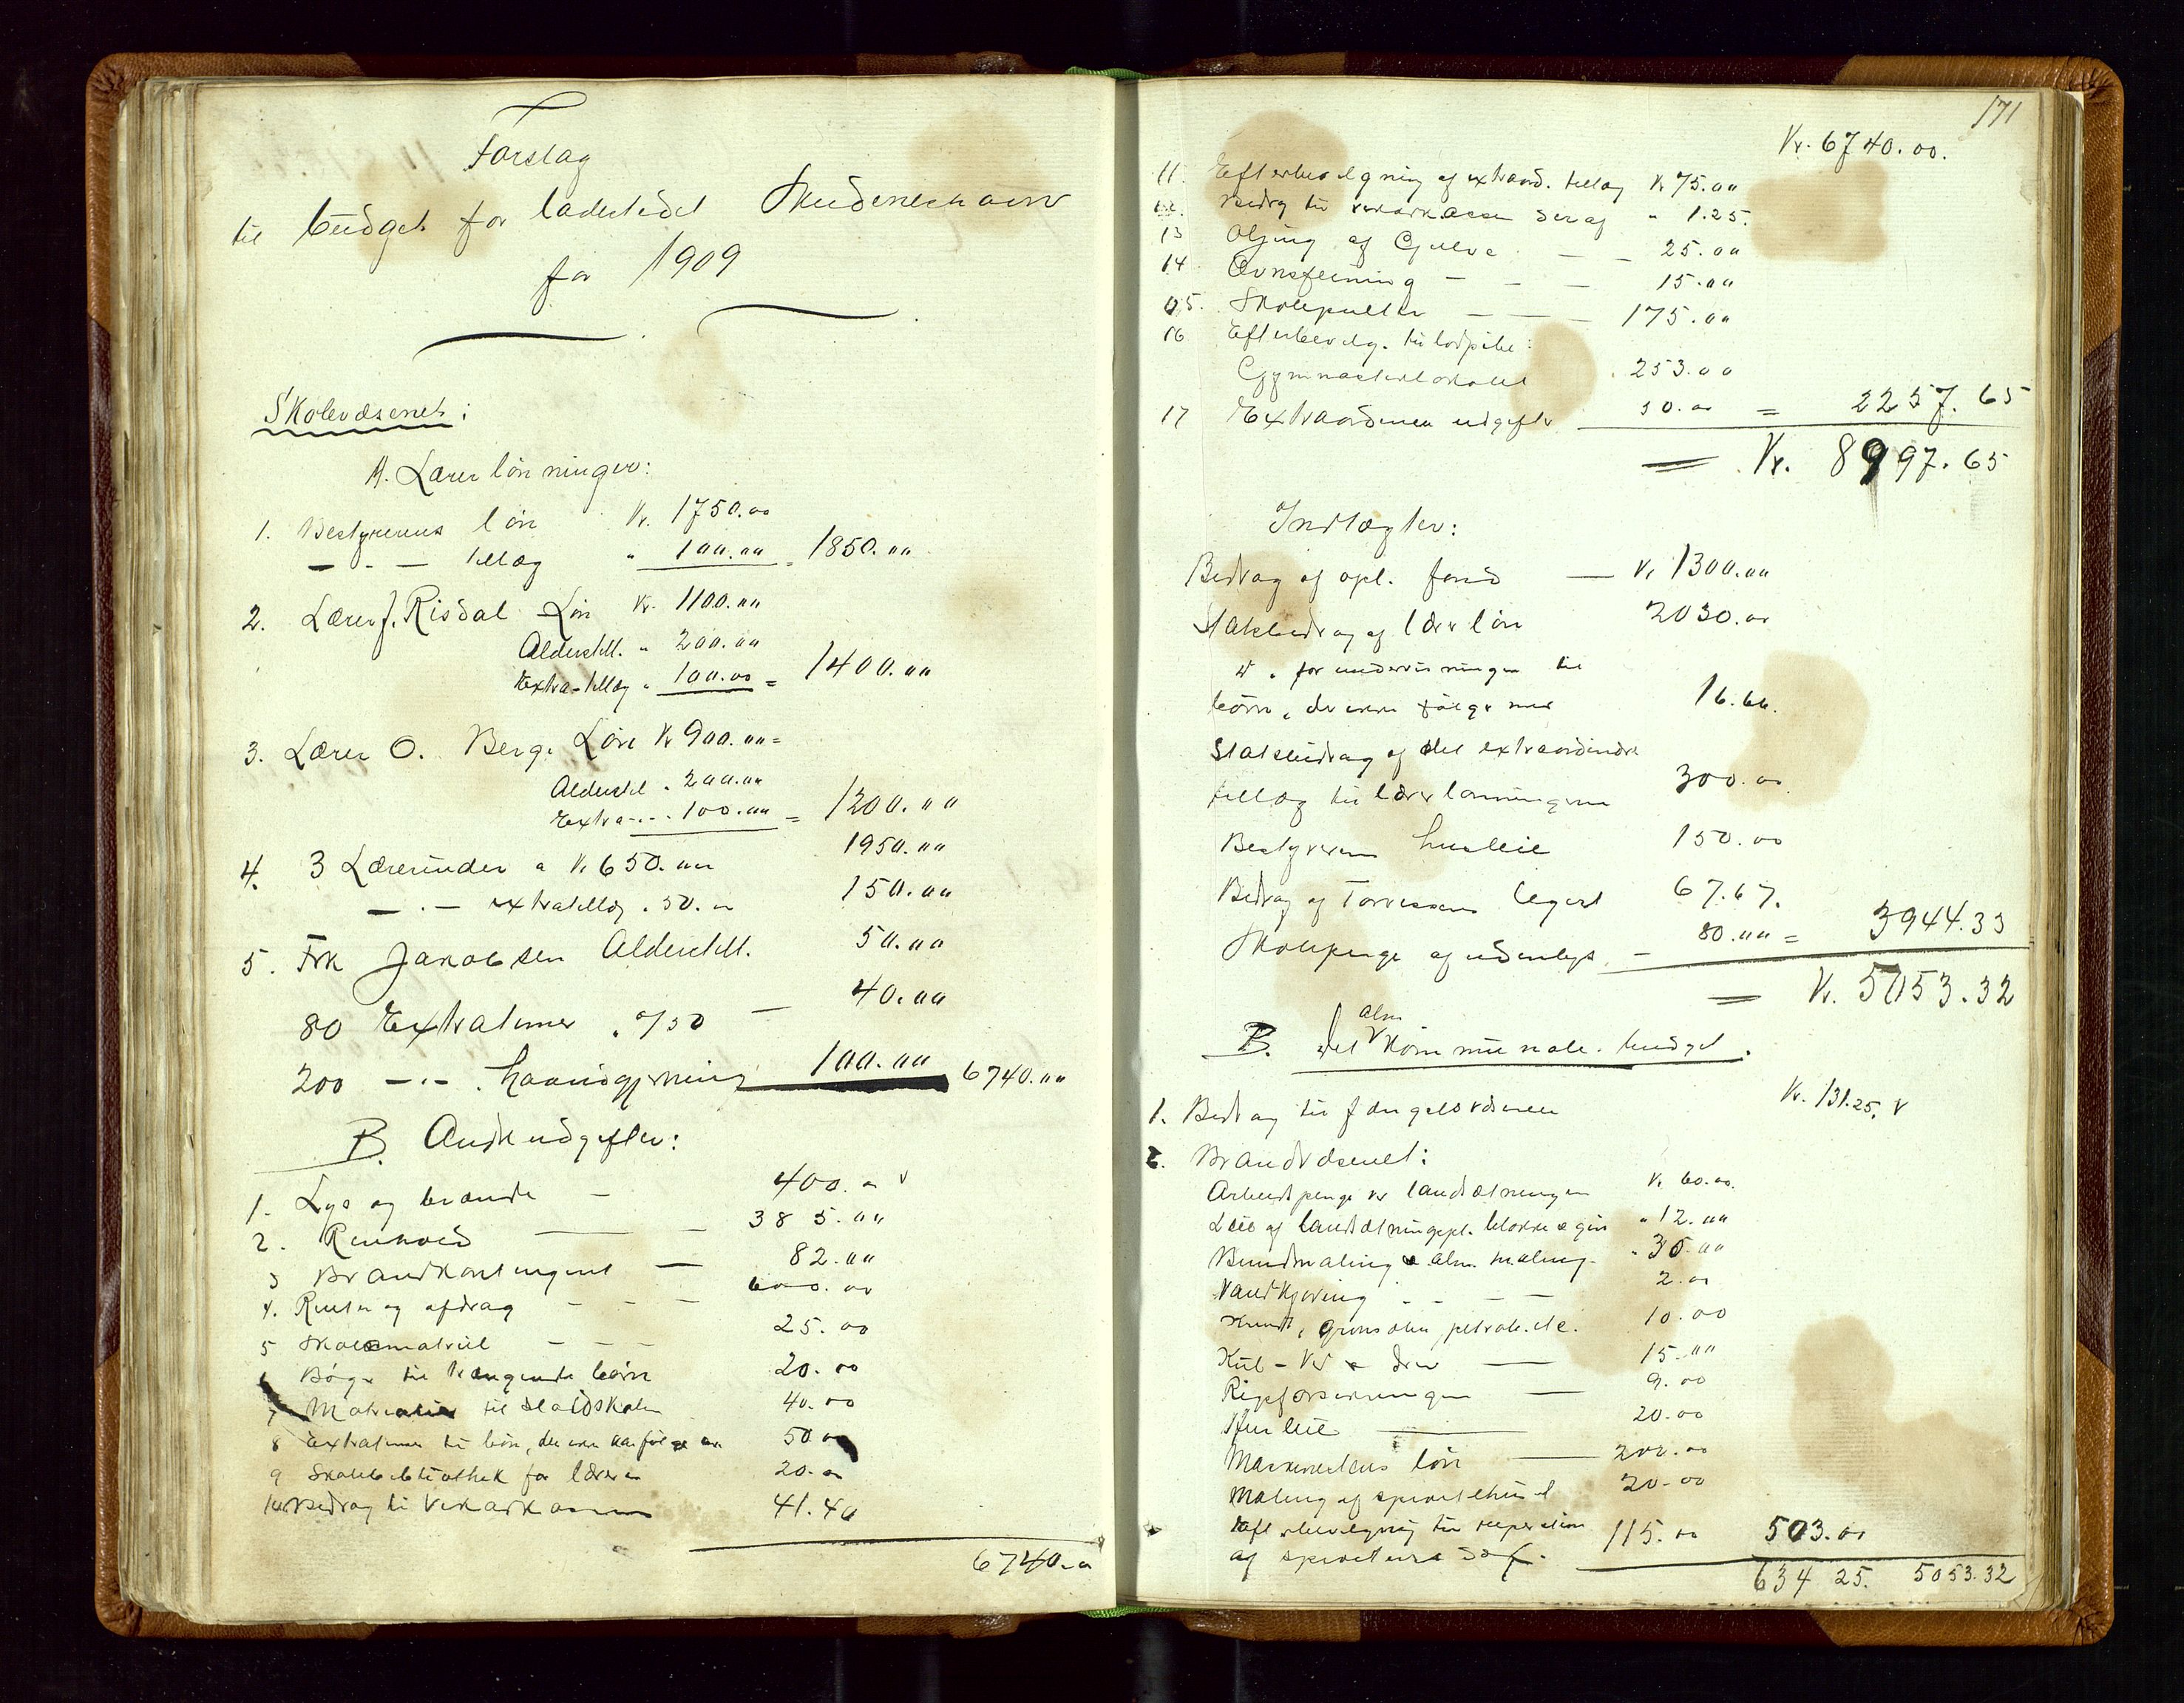 Forslag
til budget for ladestedet Skudeneshavn
for 1909
Skolevæsenet:
A. Lærerlønninger:
1. Bestyrerens løn Kr. 1750.00
— " — tillæg " 100.00 = 1850.00
2. Lærer J. Risdal Løn Kr. 1100.00
Alderstill. " 200.00
Extra-tillæg " 100.00 = 1400.00
3. Lærer O. Berge Løn Kr 900.00 =
Alderstil " 200.00
Extra - " - 100.00 = 1200.00
4. 3 Lærerinder a Kr 650.00 1950.00
— " — extratillæg " 50.00 150.00
5. Frk Jakobsen Alderstill. 50.00
80 Extratimer " 0/50 — 40.00
200 — " — haandgjerning 100.00 6740.00
B. Andre udgifter:
1. Lys og brænde — 400.00
2. Renhold — 385.00
3 Brandkontingent — 82.00
4. Renter og afdrag - - - 600.00
5 Skolematriel - - - 25.00
6 Bøger til trængende børn 20.00
7 Materialier til sløidskolen 40.00
8 Extratimer til børn, der ikke kan følge 50.00
9 Skolebibliothek for lærere 20.00
10 Bidrag til Vikarkassen 41.40
6740.00
171
Kr. 6740.00.
11. Efterbevilgning af extraord. tillæg Kr 75.00
12. Bidrag til vikarkassen deraf " 1.25.
13 Oljing af Gulve — — 25.00
14 Ovnsfeining - - — 15.00
15. Skolepulter — — — 175.00
16 Efterbevilg. til lodpibe
Gymnastiklokalet 253.00
17 Extraordinære udgifter 50.00 = 2257.65
= Kr. 8997.65
Indtægter:
Bidrag af opl. fond — Kr 1300.00
Statsbidrag af lærerløn 2030.00
" " for undervisningen til
børn, der ikke følger med 16.66.
Statsbidrag af det extraordinære
tillæg til lærerlønningerne 300.00
Bestyrerens husleie 150.00
Bidrag af Torvessens legat 67.67.
Skolepenge af udenbys - 80.00 = 3944.33
= Kr. 5053.32
alm
B. det kommunale budget.
1. Bidrag til fængselsvæsenet Kr. 131.25.
2. Brandvæsenet:
Arbeidspenge ved landsætningen Kr. 60.00
Leie af landsætningspl. blokke & gin " 12.00
Bundmaling & alm. maling " 35.00
Vandkjøring - - - — 2.00
, grønsolie, petrol. etc. 10.00
Kul - Ved & drev — 15.00
Rigsforsikringen — 9.00
Husleie — 20.00
Maskinistens løn — 200.00
Maling af sprøitehuset 20.00
Efterbevilgning til reperation
af sprøitehuset 115.00 503.00
634 25. 5053.32